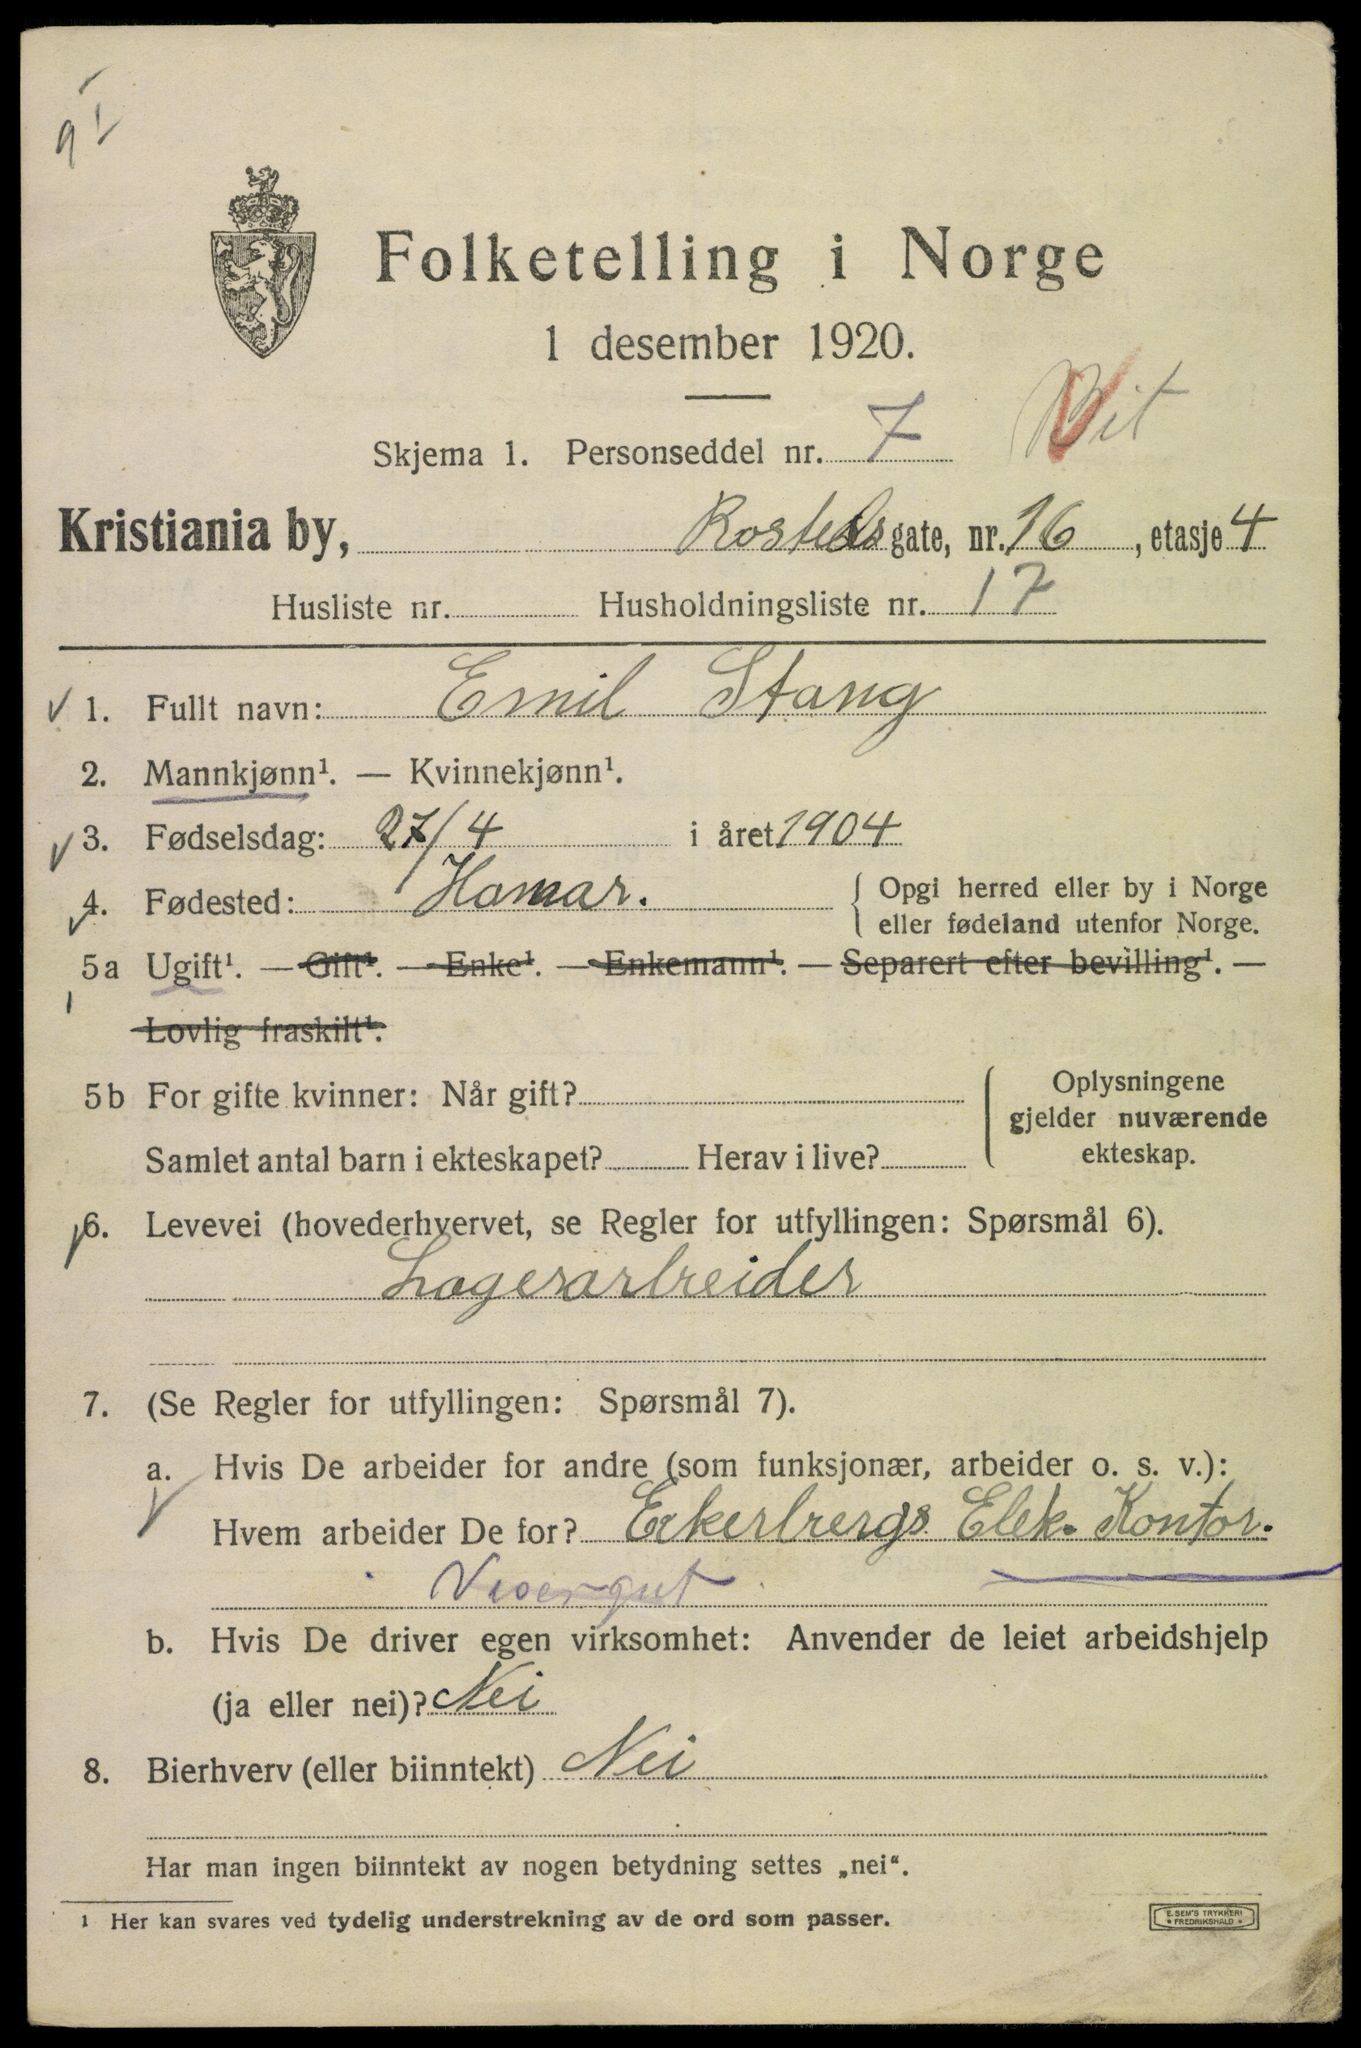 9 I
Folketelling i Norge
1 desember 1920.
Skjema 1. Personseddel nr. 7
Kristiania by, Rosteds gate, nr. 16, etasje 4
Husliste nr. Husholdningsliste nr. 17
1. Fullt navn: Emil Stang
2. Mannkjønn¹. — Kvinnekjønn¹.
3. Fødselsdag: 27/4 i året 1904
4. Fødested: Hamar. Opgi herred eller by i Norge
eller fødeland utenfor Norge.
5a Ugift¹. — Gift¹. — Enke¹. — Enkemann¹. — Separert efter bevilling¹. —
Lovlig fraskilt¹.
5b For gifte kvinner: Når gift? Oplysningene
gjelder nuværende
Samlet antal barn i ekteskapet? Herav i live? ekteskap.
6. Levevei (hovederhvervet, se Regler for utfyllingen: Spørsmål 6).
Lagerarbeider
7. (Se Regler for utfyllingen: Spørsmål 7).
a. Hvis De arbeider for andre (som funksjonær, arbeider o. s. v.):
Hvem arbeider De for? Eckerbergs Elek. Kontor.
Visergut
b. Hvis De driver egen virksomhet: Anvender de leiet arbeidshjelp
(ja eller nei)? Nei
8. Bierhverv (eller biinntekt) Nei
Har man ingen biinntekt av nogen betydning settes „nei".
1 Her kan svares ved tydelig understrekning av de ord som passer.
E. SEM'S TRYKKERI
FREDRIKSHALD